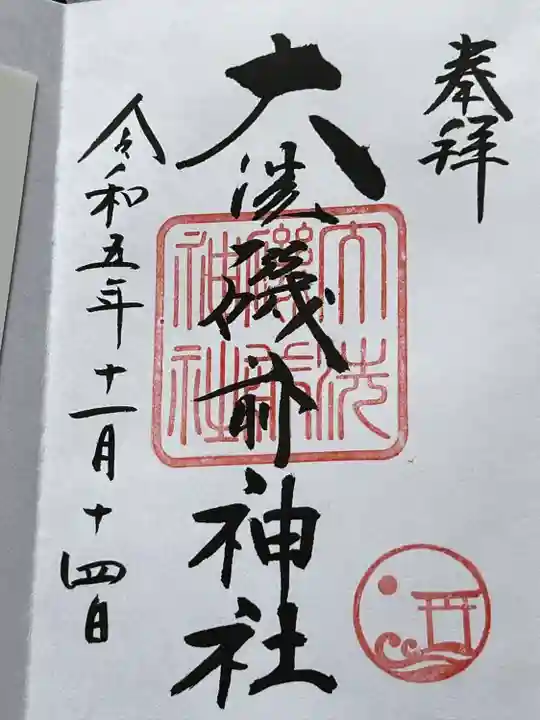 奉拝
大洗磯前神社
大洗磯前神社
令和五年十一月十四日